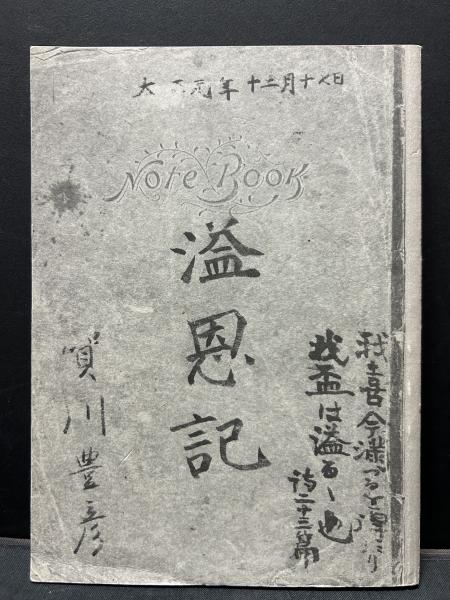 大正元年十二月十七日
Note Book
溢恩記
我喜今満つるを得たり
我盃は溢るゝ也
詩二十三篇
賀川豊彦